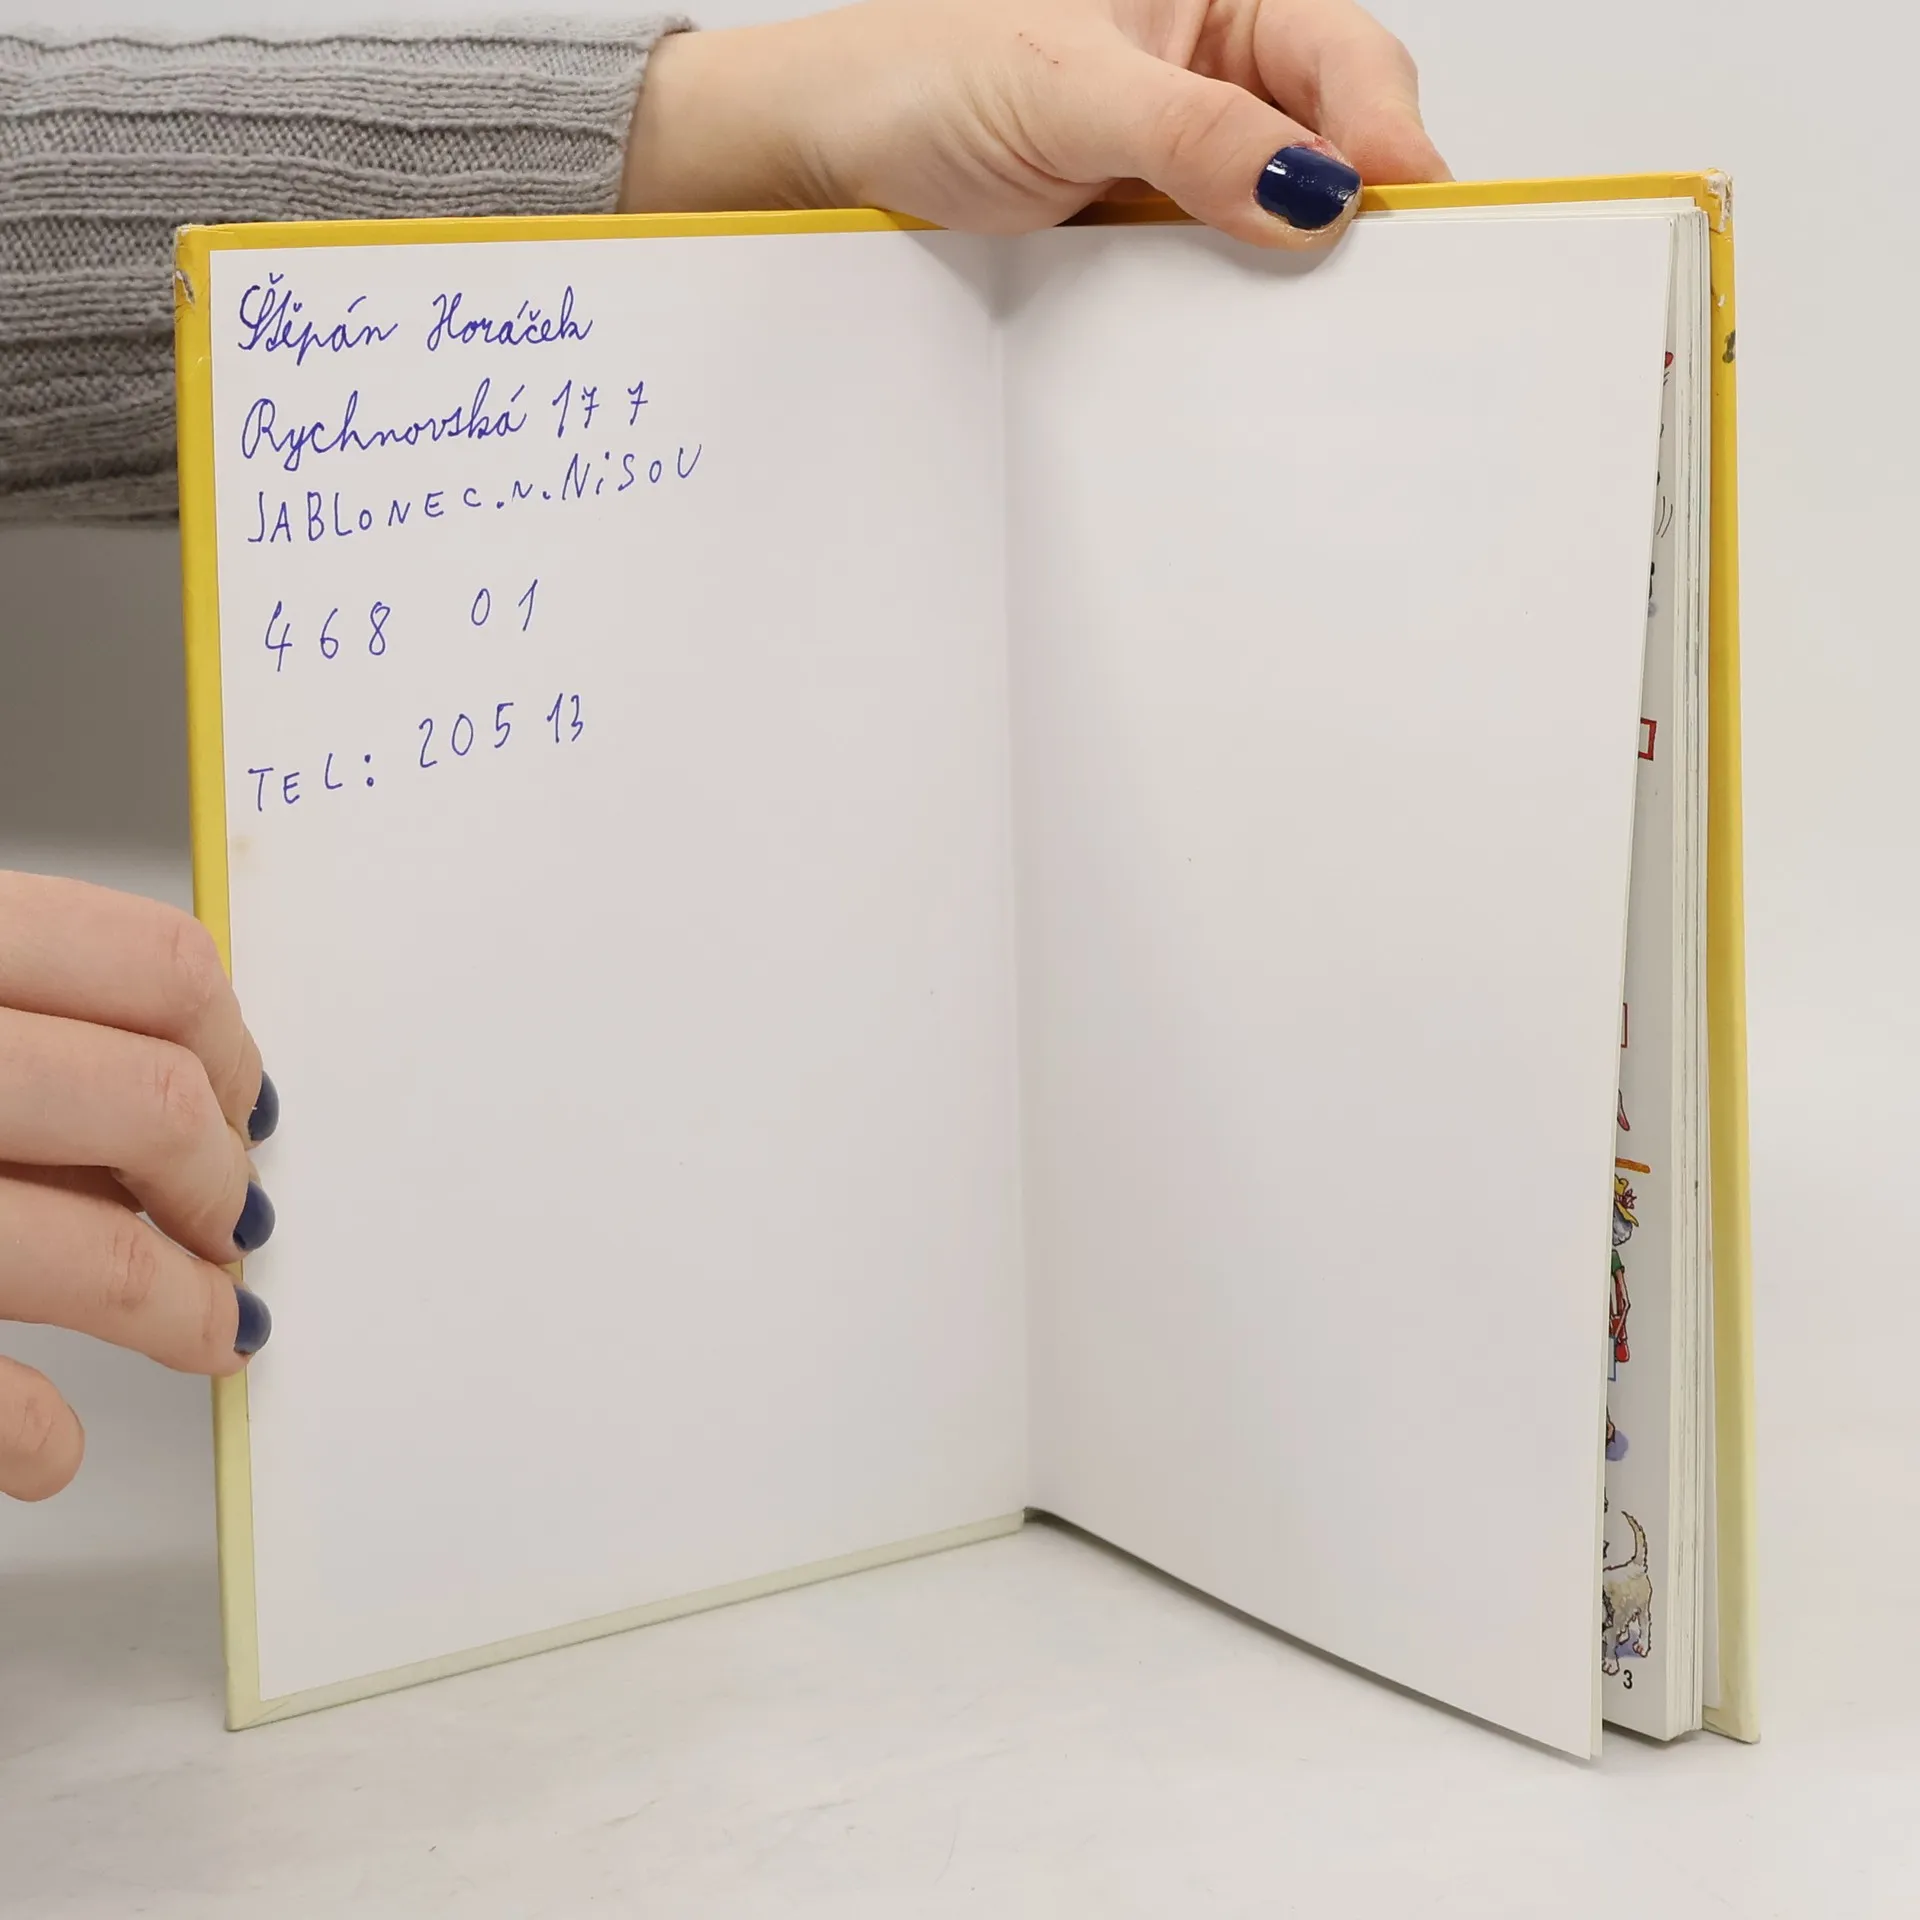 Štěpán Horáček
Rychnovská 177
JABLONEC.N.NiSOU
468 01
TEL: 205 13
3